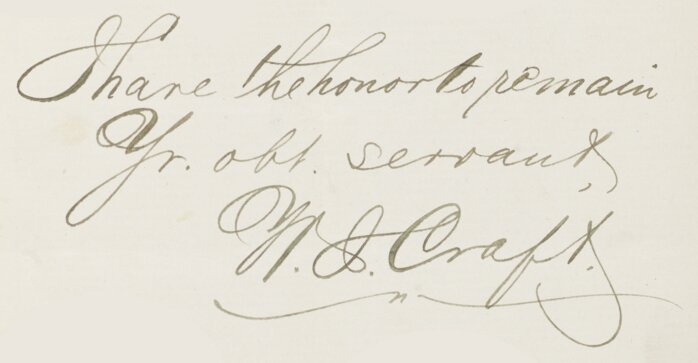 I have the honor to remain
Yr. obt. servant,
W. S. Craft.